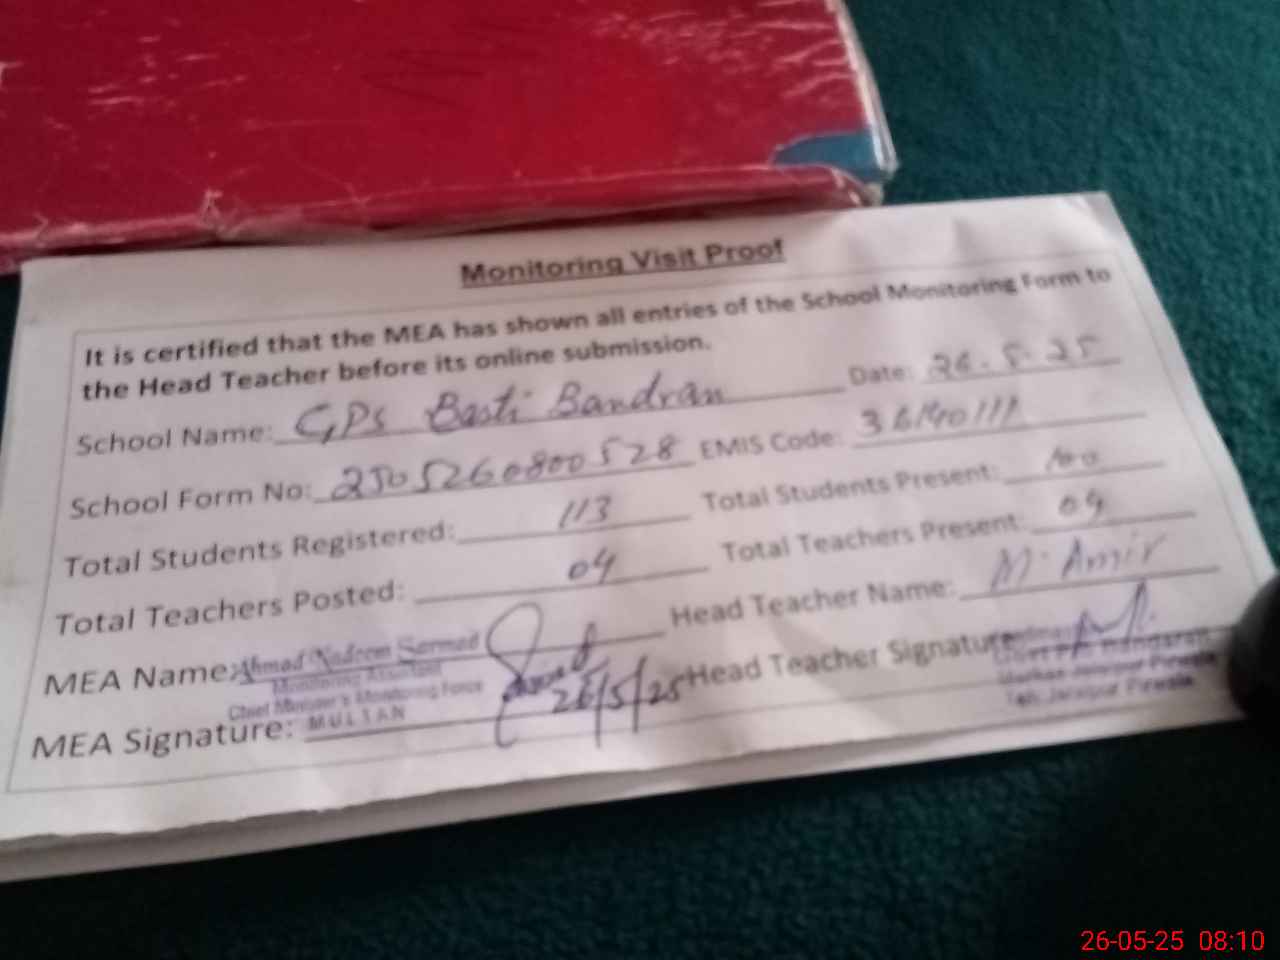 Monitoring Visit Proof
It is certified that the MEA has shown all entries of the School Monitoring Form to
the Head Teacher before its online submission.
School Name: GPS Basti Bandran Date: 26.5.25
School Form No: 2505260800528 EMIS Code: 36140111
Total Students Registered: 113 Total Students Present: 100
Total Teachers Posted: 04 Total Teachers Present: 04
MEA Name: Ahmad Nadeem Sarmad Head Teacher Name: M. Amir
Monitoring Assistant
Chief Minister's Monitoring Force
MEA Signature: MULTAN 26/5/25 Head Teacher Signature:
Markaz Jalalpur Pirwala
Teh. Jalalpur Pirwala
26-05-25 08:10